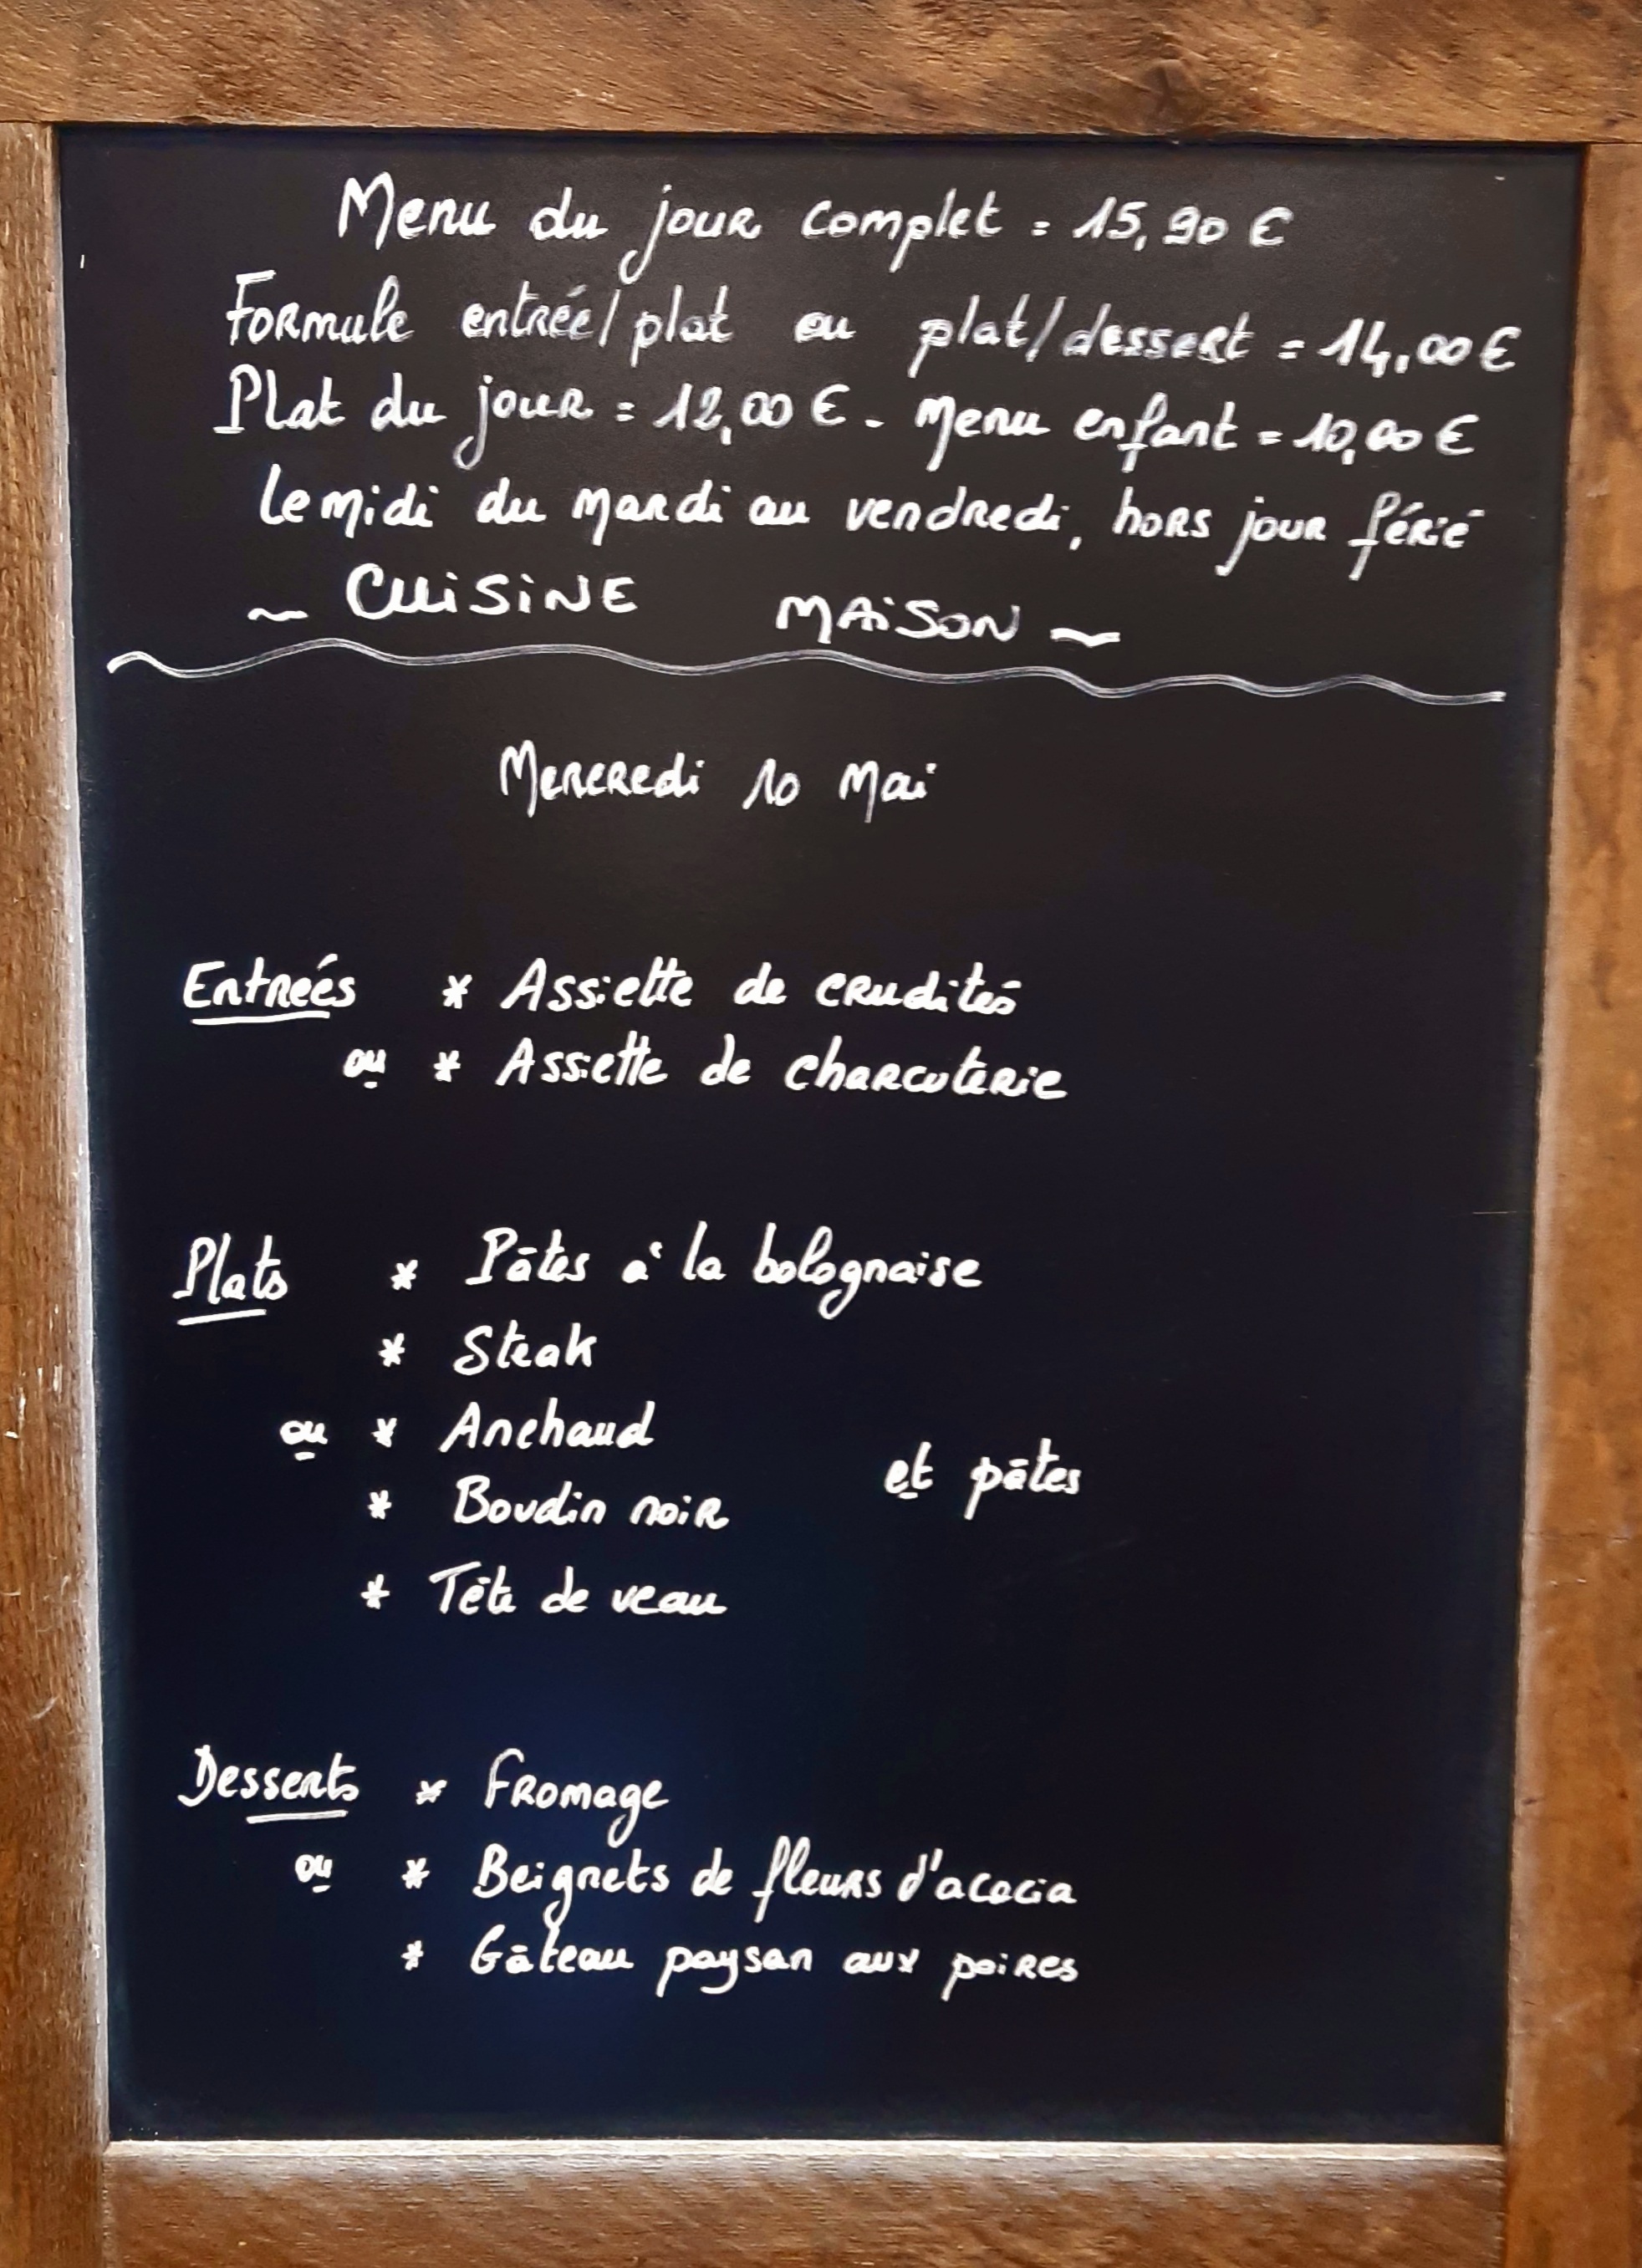 Menu du jour complet = 15,90 €
Formule entrée/plat ou plat/dessert = 14,00 €
Plat du jour = 12,00 € - Menu enfant = 10,00 €
le midi du mardi au vendredi, hors jour férié
~ CUISINE MAISON ~
Mercredi 10 Mai
Entrées * Assiette de crudités
ou * Assiette de charcuterie
Plats * Pâtes à la bolognaise
* Steak
ou * Anchaud
et pâtes
* Boudin noir
* Tête de veau
Desserts * Fromage
ou * Beignets de fleurs d'acacia
* Gâteau paysan aux poires